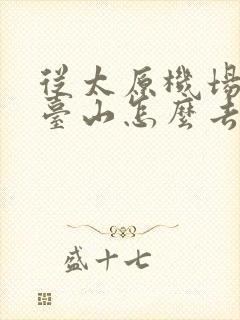 從太原機場
臺山怎麼去
盛十七